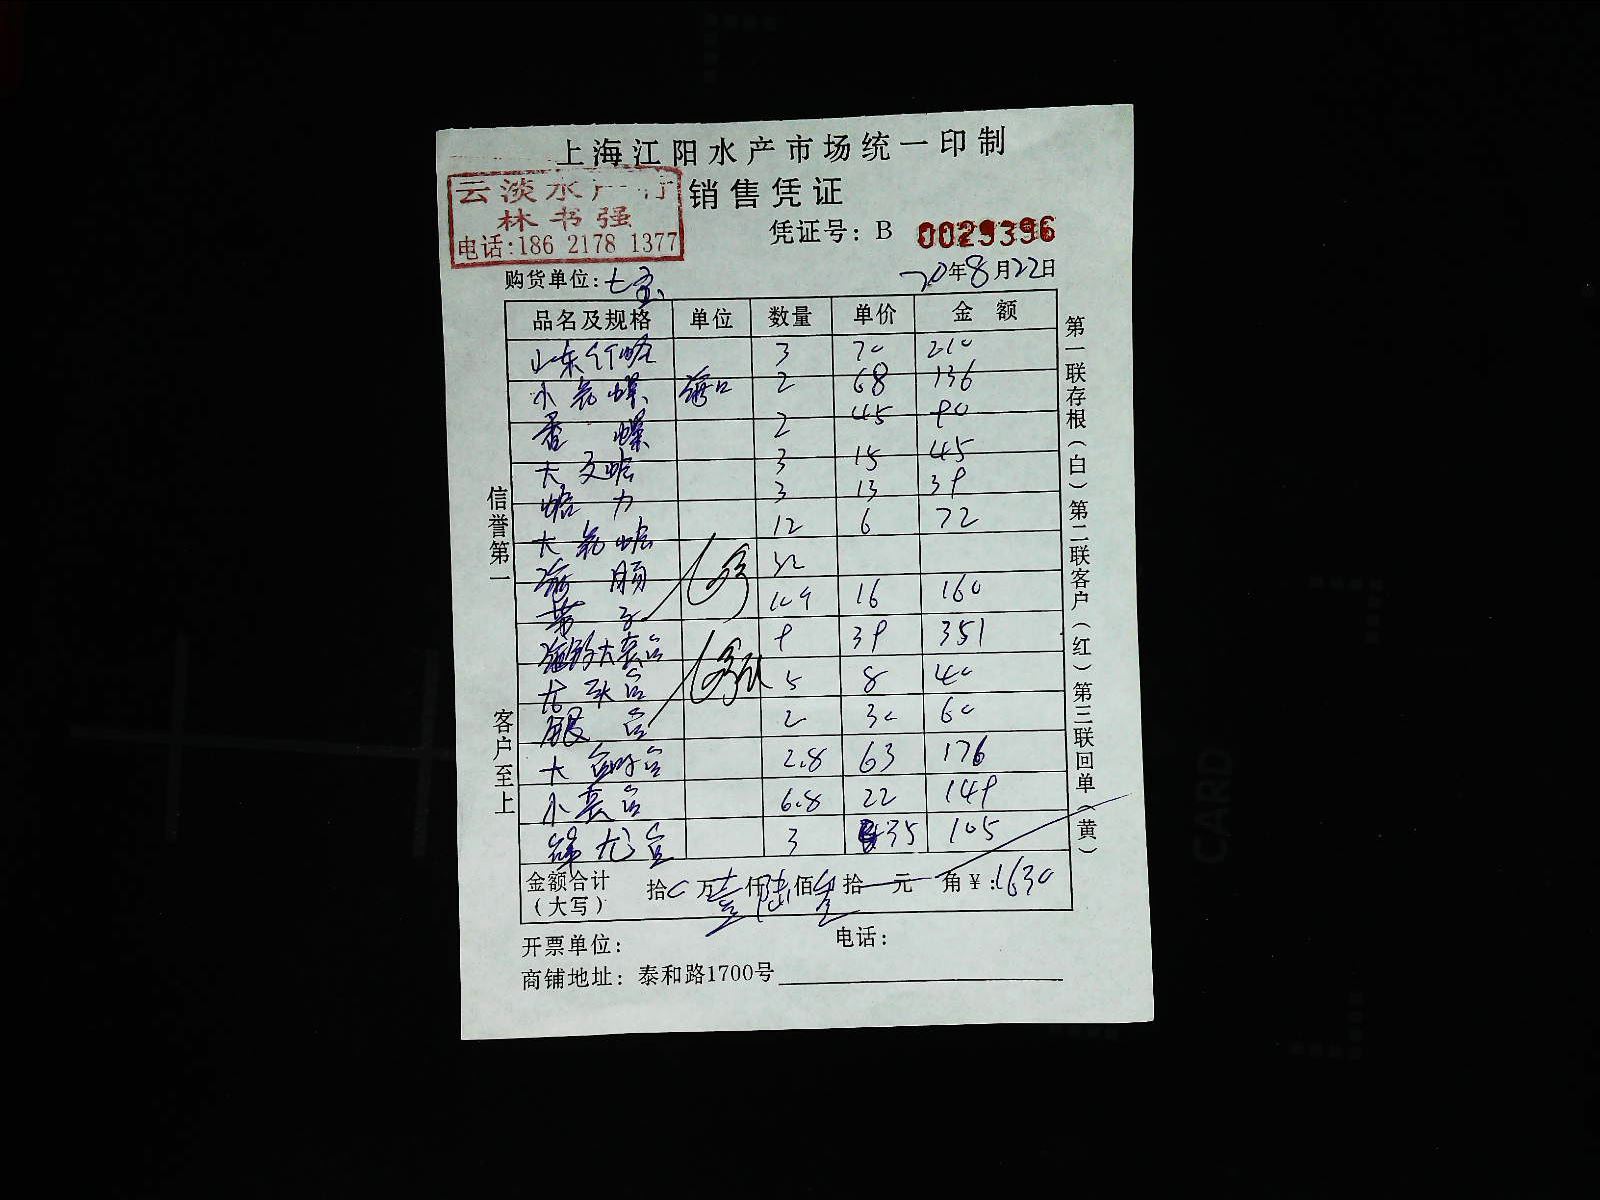 上海江阳水产市场统一印制
云淡水产行
销售凭证
林书强
凭证号：B 0029396
电话:186 2178 1377
购货单位：七宝
20年8月22日
品名及规格 单位 数量 单价 金额
山东竹蛏 3 70 210
小花螺 海口 2 68 136
香螺 2 45 90
大文蛤 3 15 45
蛤 3 13 39
大花蛤 12 6 72
海肠 32
带子 109 16 160
9 39 351
5 8 40
2 30 60
大 2.8 63 176
小 6.8 22 149
3 35 105
金额合计
（大写）
拾0万壹仟陆佰叁拾元角￥:1630
开票单位： 电话：
商铺地址：泰和路1700号
信誉第一
客户至上
第一联存根(白)第二联客户(红)第三联回单(黄)
CARD